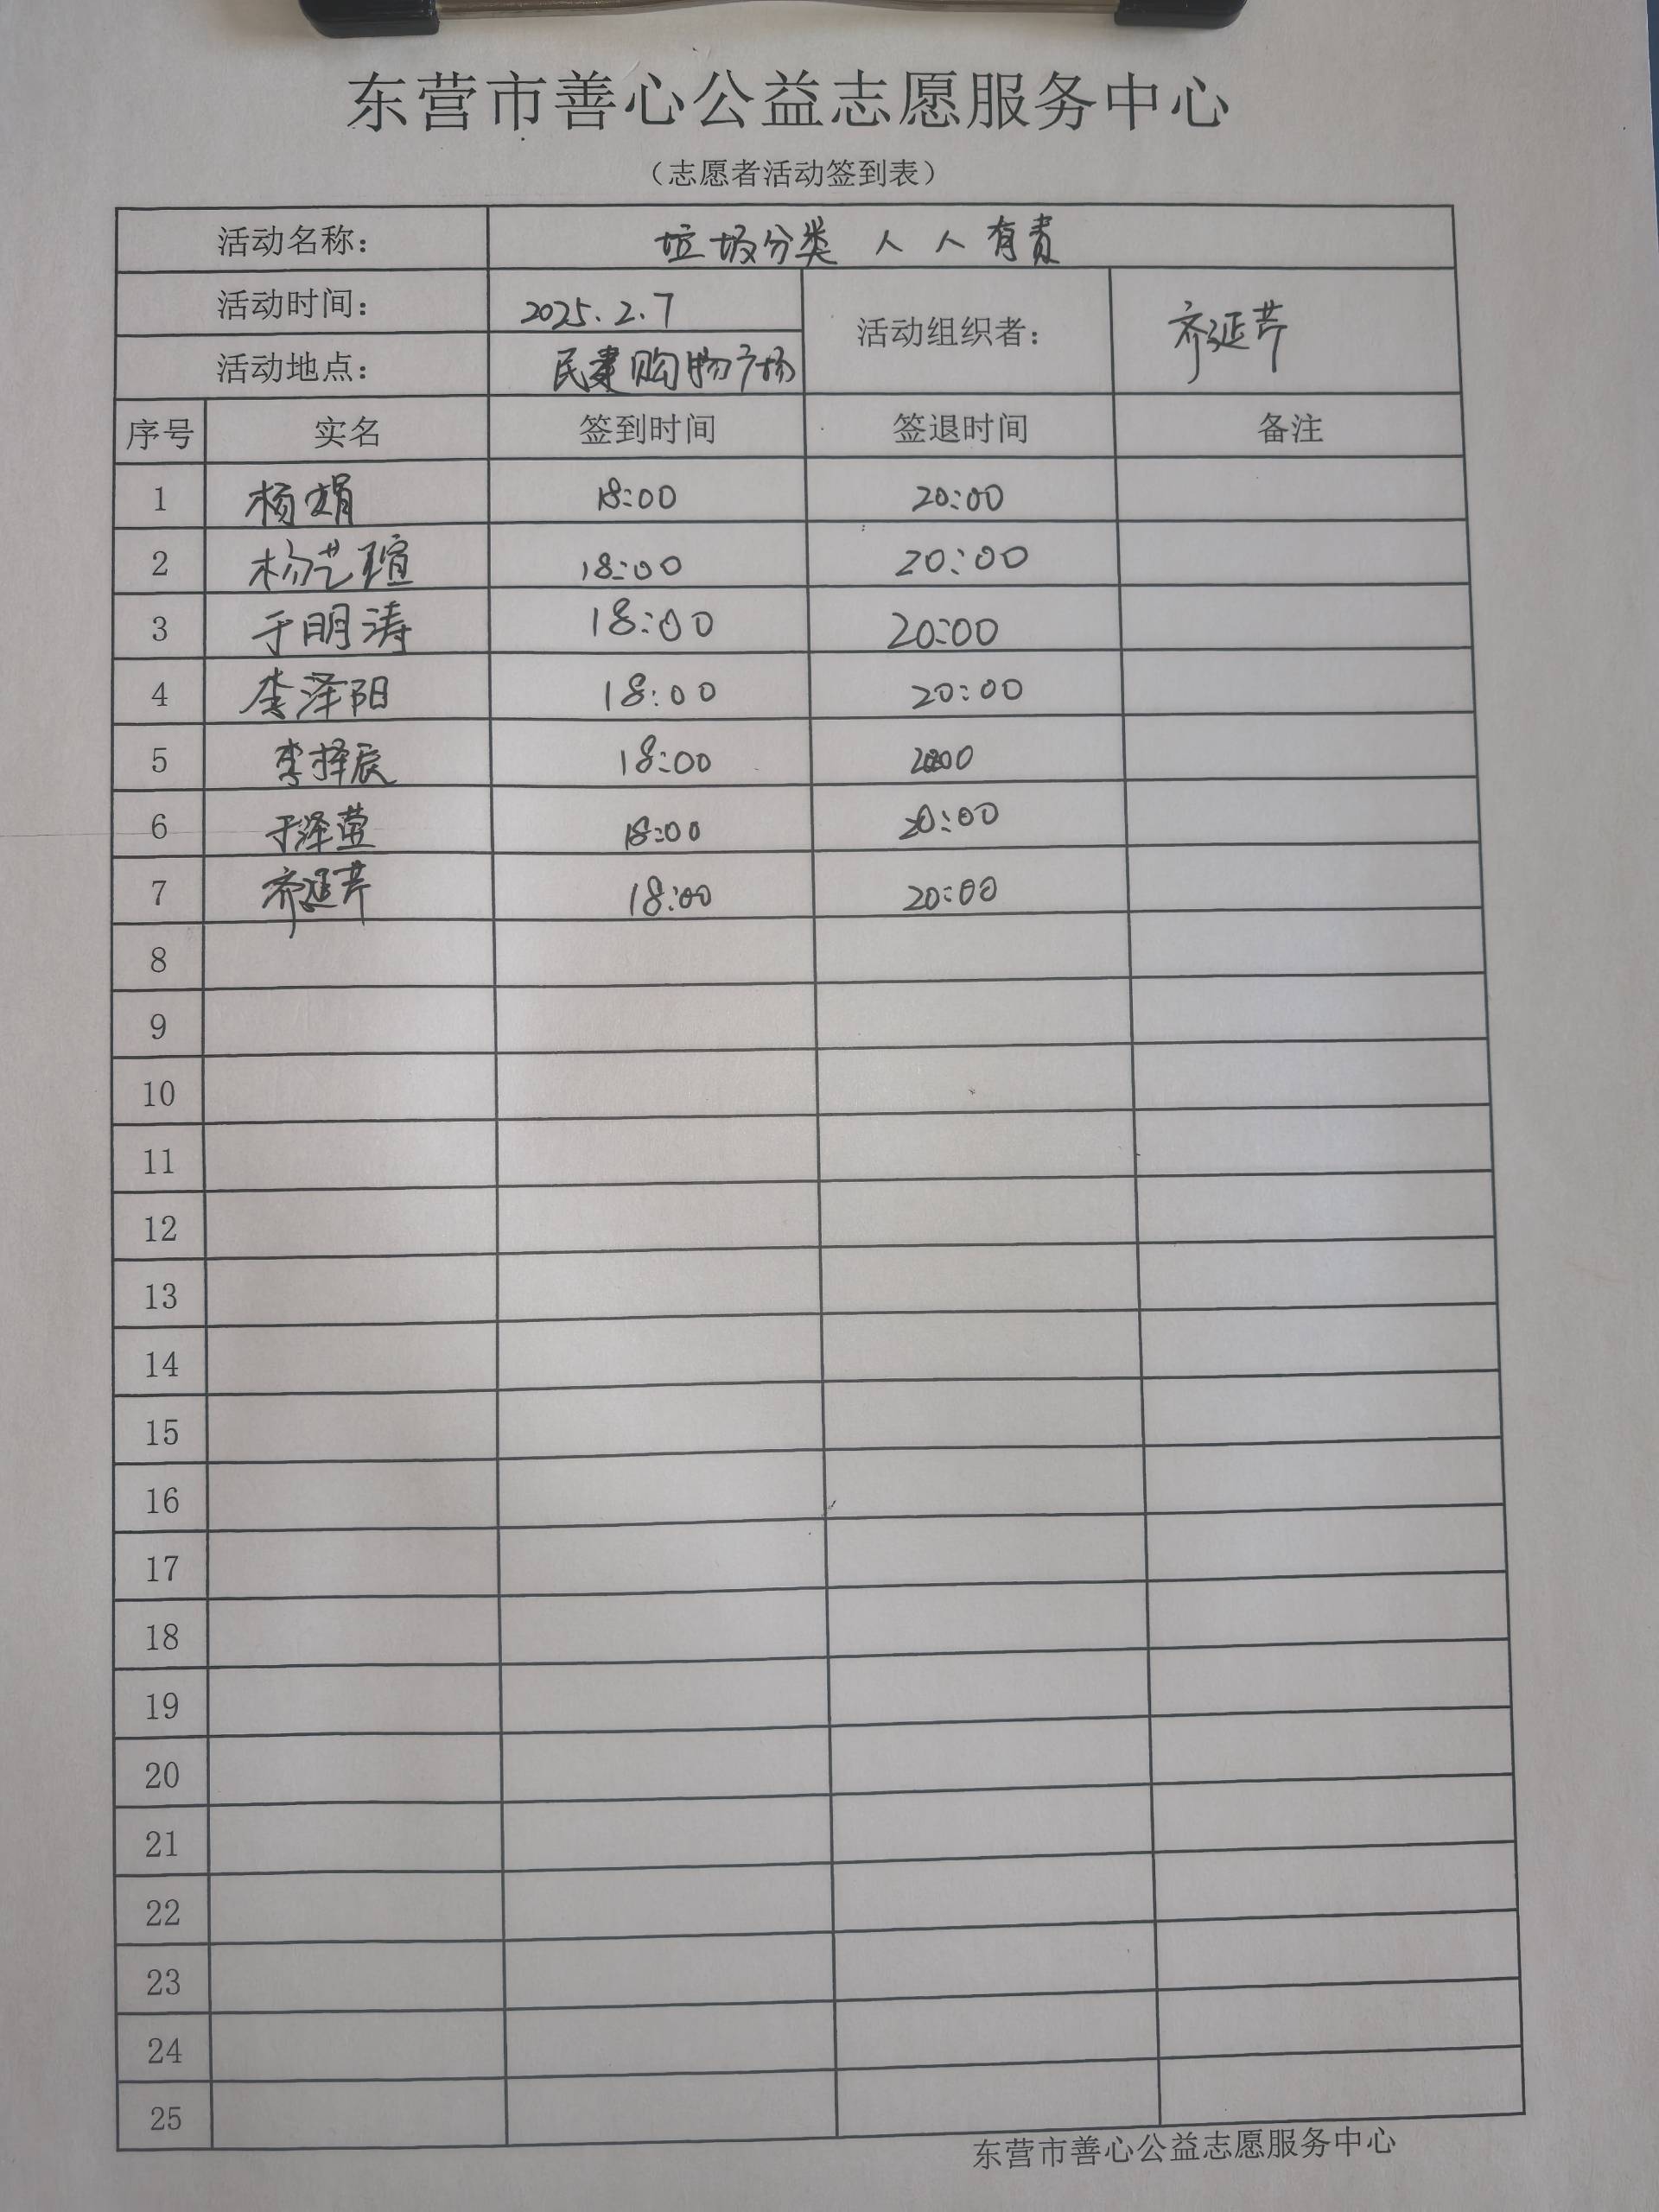 东营市善心公益志愿服务中心
（志愿者活动签到表）
活动名称： 垃圾分类 人人有责
活动时间： 2025.2.7 活动组织者： 齐延芹
活动地点： 民建购物广场
序号 实名 签到时间 签退时间 备注
1 杨娟 18:00 20:00
2 杨艺瑄 18:00 20:00
3 于明涛 18:00 20:00
4 李泽阳 18:00 20:00
5 李择辰 18:00
6 于泽莹 18:00 20:00
7 齐延芹 18:00 20:00
8
9
10
11
12
13
14
15
16
17
18
19
20
21
22
23
24
25
东营市善心公益志愿服务中心